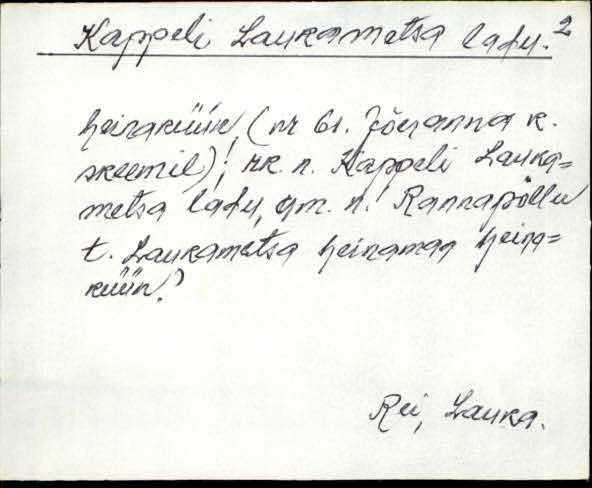 Kappeli Laukametsa ladu. 2
heinaküün, (nr 61. Jõeranna k.
skeemil); rk. n. Kappeli Lauka=
metsa ladu, qm. n. Rannapõllu
t. Laukametsa heinamaa heina=
küün.
Rei, Lauka.